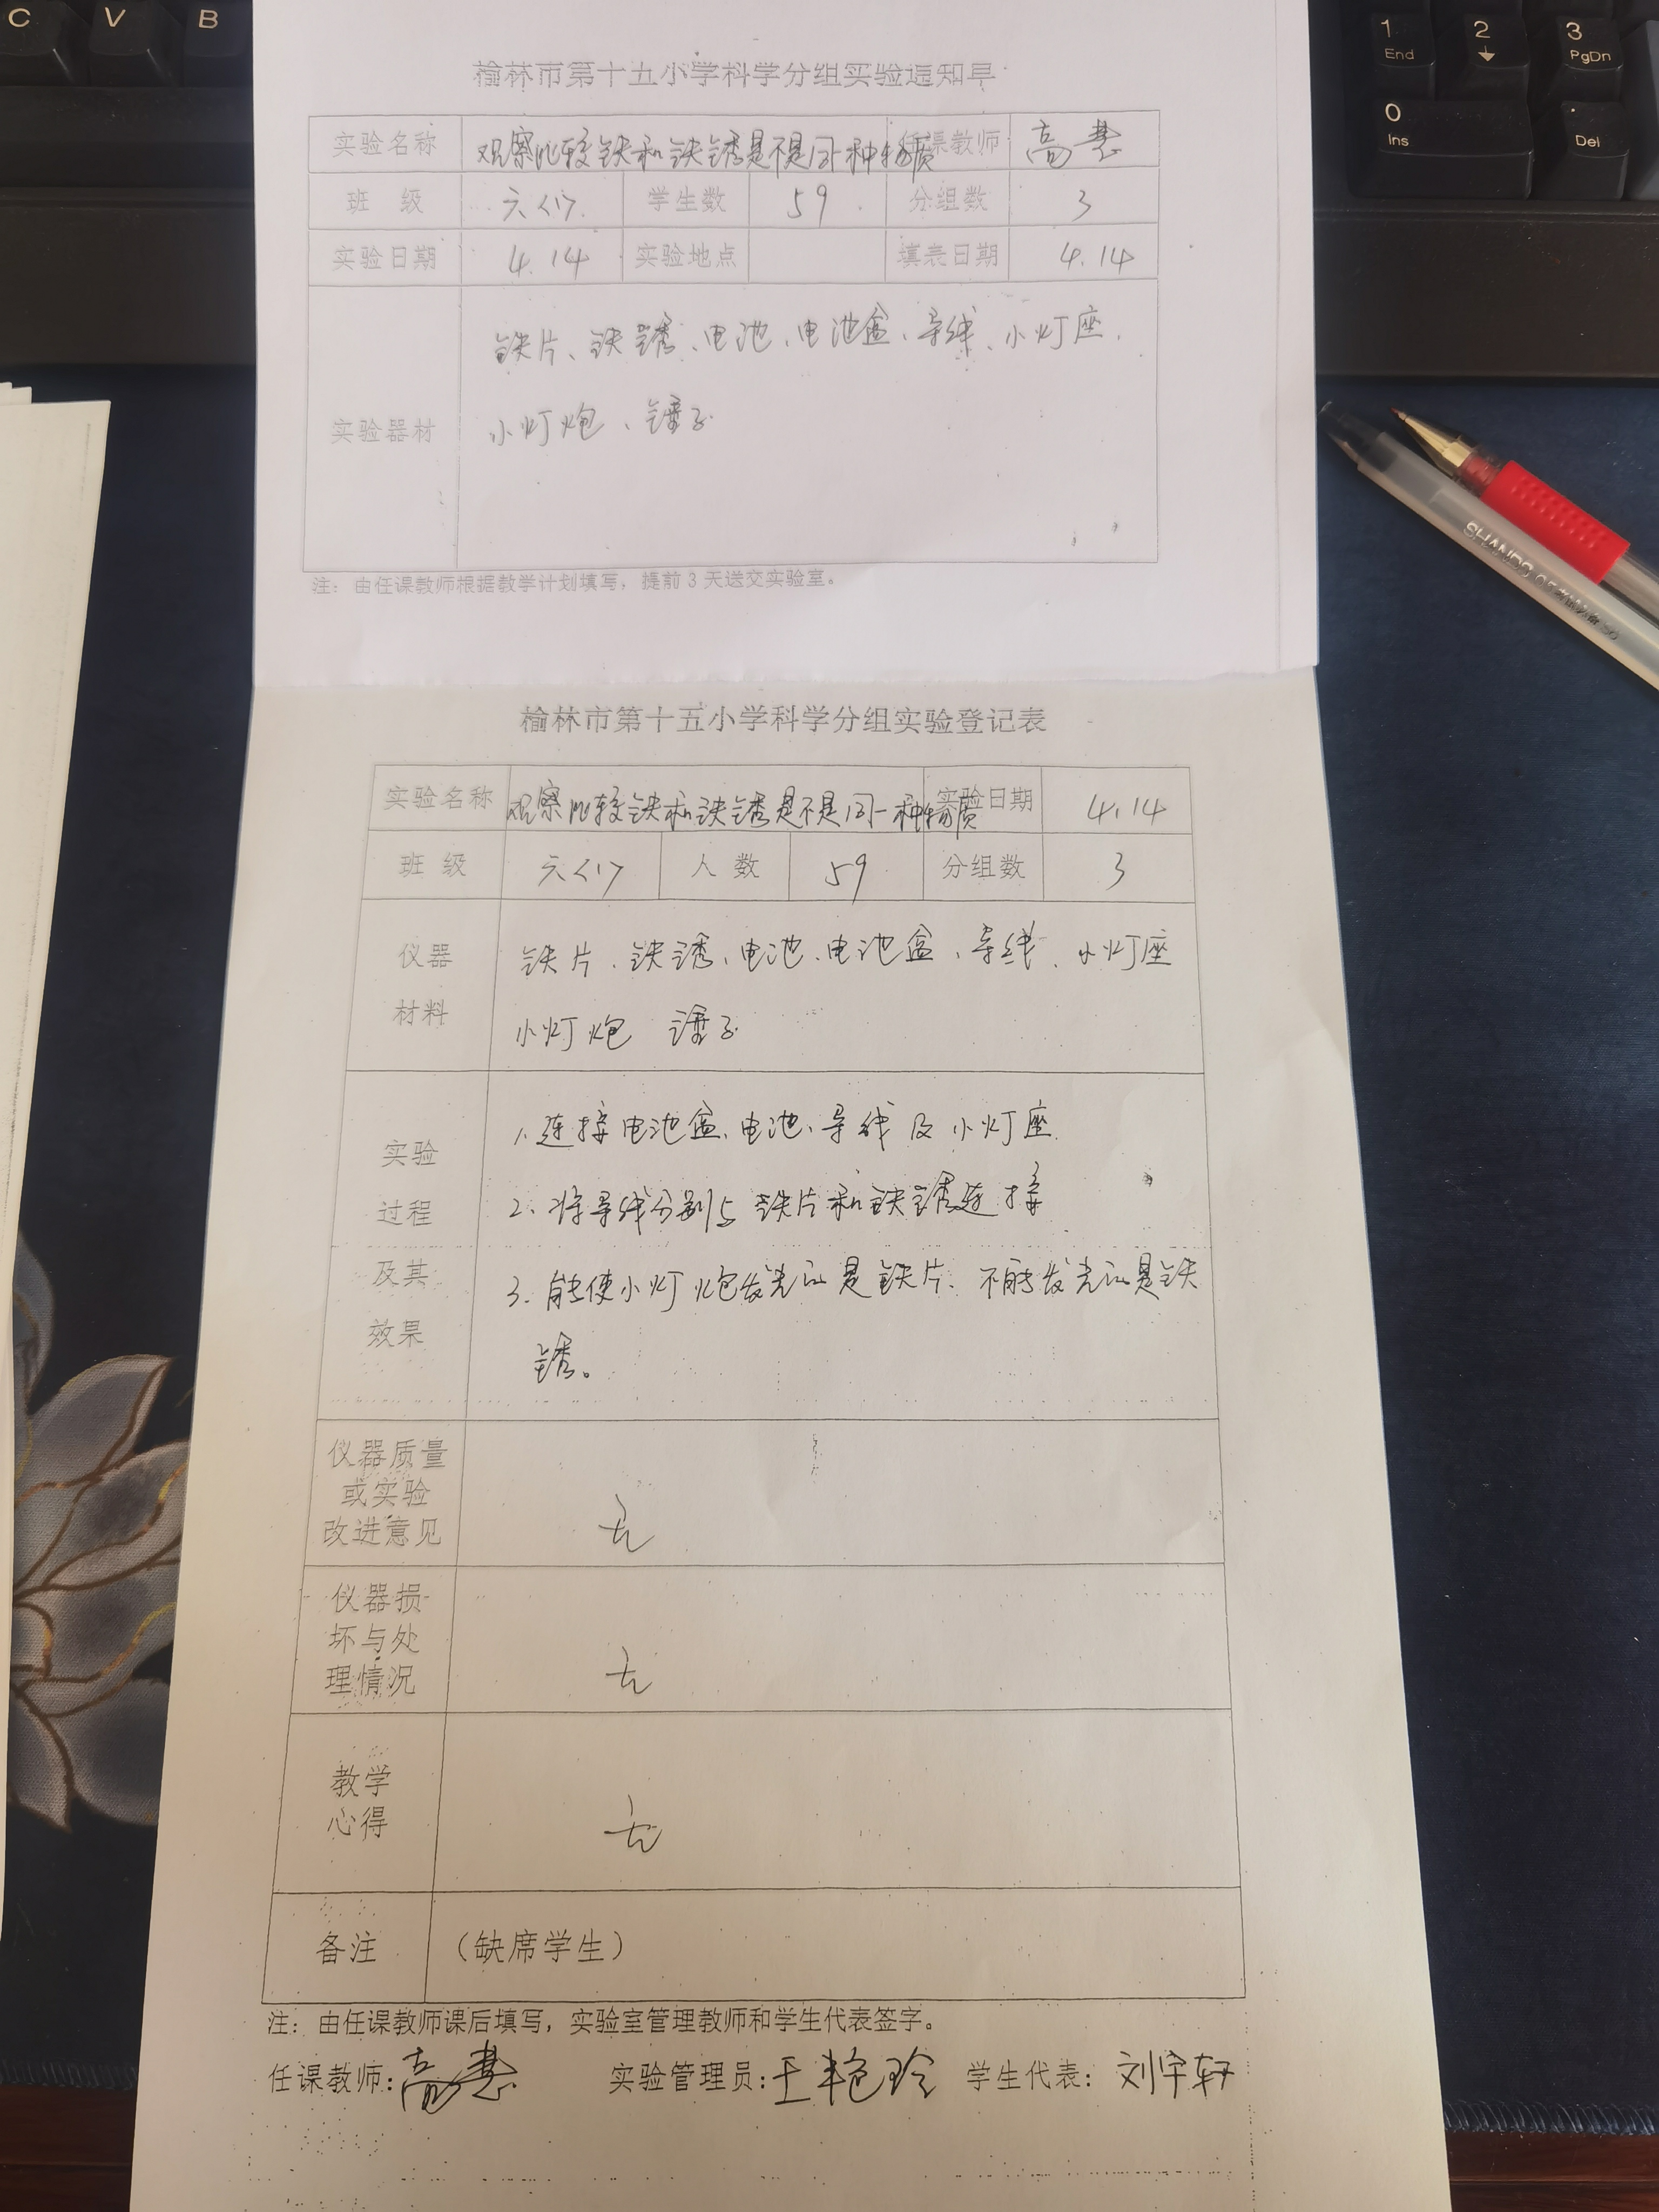 C V B
1 End 2 3 PgDn
0 Ins . Del
榆林市第十五小学科学分组实验通知单
实验名称 观察比较铁和铁锈是不是同一种物质 任课教师 高慧
班 级 六<1> 学生数 59 分组数 3
实验日期 4.14 实验地点 填表日期 4.14
实验器材 铁片、铁锈、电池、电池盒、导线、小灯座、
小灯炮、锤子
注：由任课教师根据教学计划填写，提前3天送交实验室。
SHANDO
榆林市第十五小学科学分组实验登记表
实验名称 观察比较铁和铁锈是不是同一种物质 实验日期 4.14
班 级 六<1> 人 数 59 分组数 3
仪器 铁片、铁锈、电池、电池盒、导线、小灯座
材料 小灯炮 锤子
实验 1.连接电池盒、电池、导线及小灯座.
过程 2.将导线分别与铁片和铁锈连接
及其 3.能使小灯炮发光的是铁片、不能发光的是铁
效果 锈。
仪器质量
或实验
改进意见 无
仪器损
坏与处
理情况 无
教学
心得 无
备注 （缺席学生）
注：由任课教师课后填写，实验室管理教师和学生代表签字。
任课教师：高慧 实验管理员：王艳玲 学生代表：刘宇轩